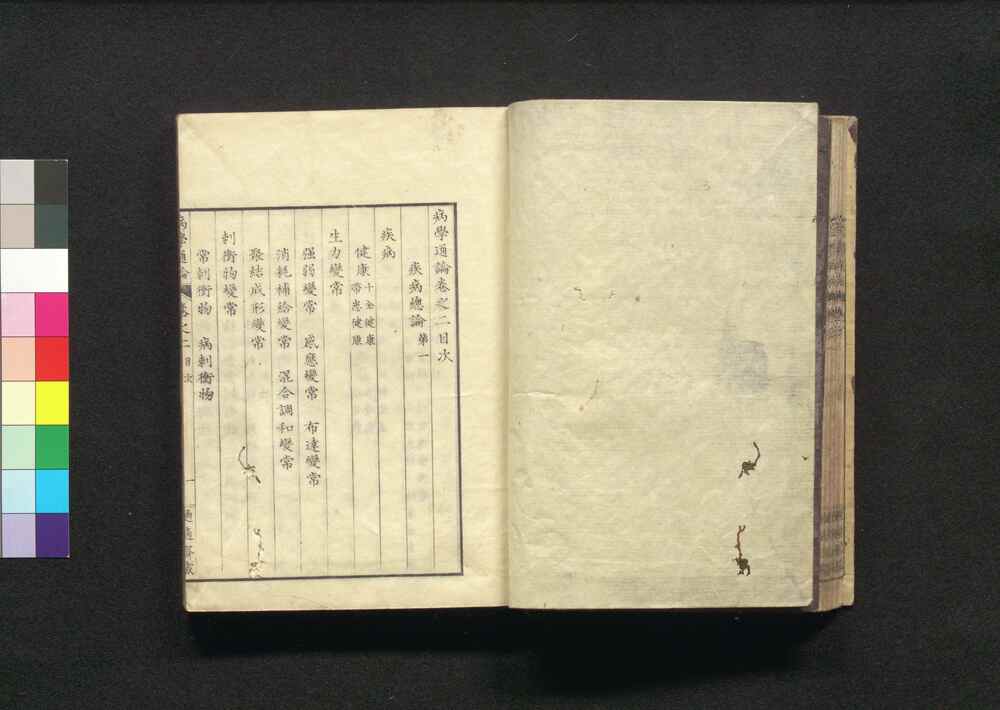 病學通論卷之二目次
疾病總論第一
疾病
健康 十全健康 帶患健康
生力變常
强弱變常 感應變常 布達變常
消耗補給變常 混合調和變常
聚結成形變常
刺衝物變常
常刺衝物 病刺衝物
病學通論 卷之二 目次 一